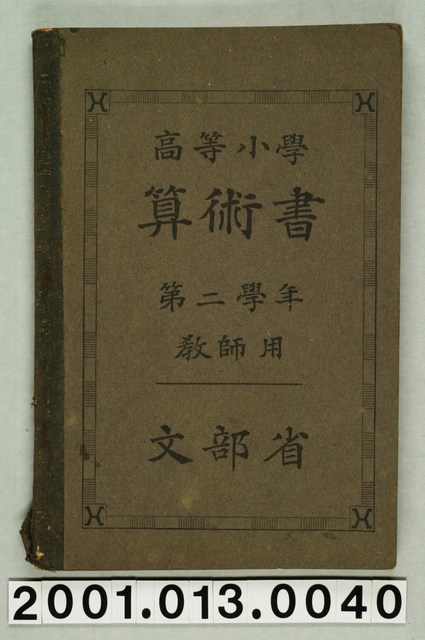 高等小學
算術書
第二學年
教師用
文部省
2001.013.0040